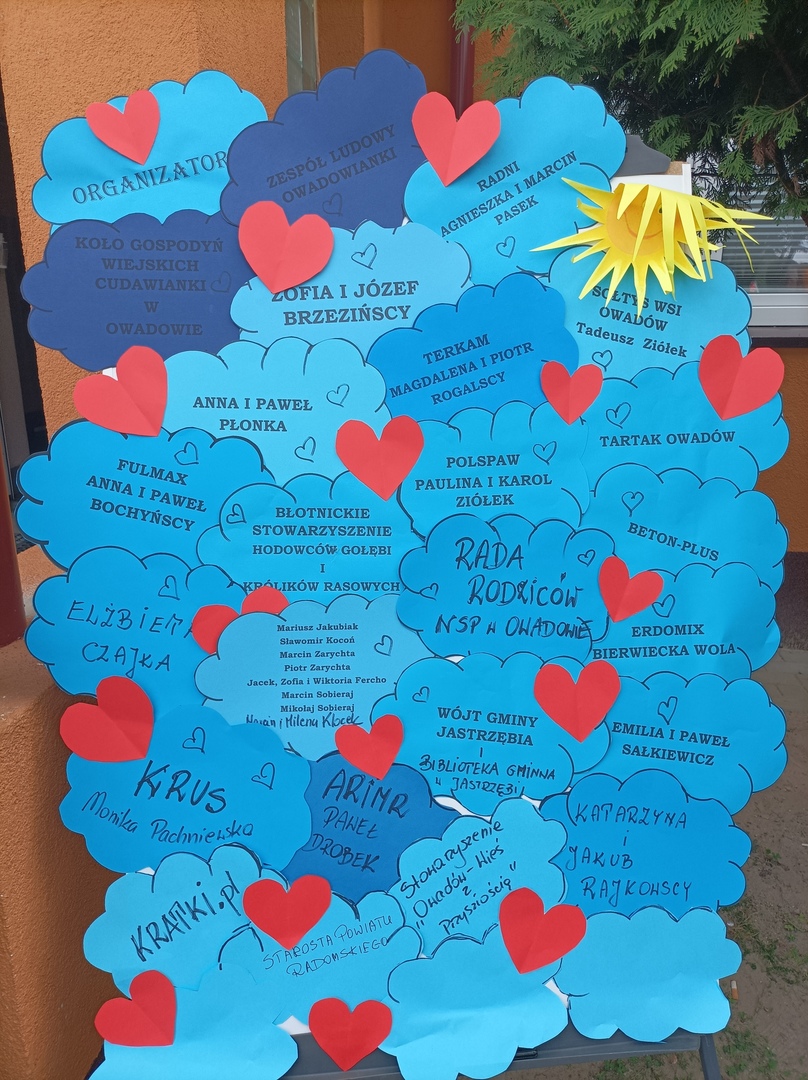 ORGANIZATOR
ZESPÓŁ LUDOWY
OWADOWIANKI
RADNI
AGNIESZKA I MARCIN
PASEK
KOŁO GOSPODYŃ
WIEJSKICH
CUDAWIANKI
W
OWADOWIE
ZOFIA I JÓZEF
BRZEZIŃSCY
SOŁTYS WSI
OWADÓW
Tadeusz Ziółek
TERKAM
MAGDALENA I PIOTR
ROGALSCY
ANNA I PAWEŁ
PŁONKA
TARTAK OWADÓW
FULMAX
ANNA I PAWEŁ
BOCHYŃSCY
POLSPAW
PAULINA I KAROL
ZIÓŁEK
BŁOTNICKIE
STOWARZYSZENIE
HODOWCÓW GOŁĘBI
I
KRÓLIKÓW RASOWYCH
BETON-PLUS
RADA
RODZICÓW
NSP w OWADOWIE
ELŻBIETA
CZAJKA
Mariusz Jakubiak
Sławomir Kocoń
Marcin Zarychta
Piotr Zarychta
Jacek, Zofia i Wiktoria Fercho
Marcin Sobieraj
Mikołaj Sobieraj
Milena Kłocek
ERDOMIX
BIERWIECKA WOLA
WÓJT GMINY
JASTRZĘBIA
i
BIBLIOTEKA GMINNA
w JASTRZĘBI
EMILIA I PAWEŁ
SAŁKIEWICZ
KRUS
Monika Pachniewska
ARIMR
PAWEŁ
DROBEK
KATARZYNA
i
JAKUB
RAJKOWSCY
Stowarzyszenie
"Owadów-Wieś
z
Przyszłością"
KRATKI.pl
STAROSTA POWIATU
RADOMSKIEGO